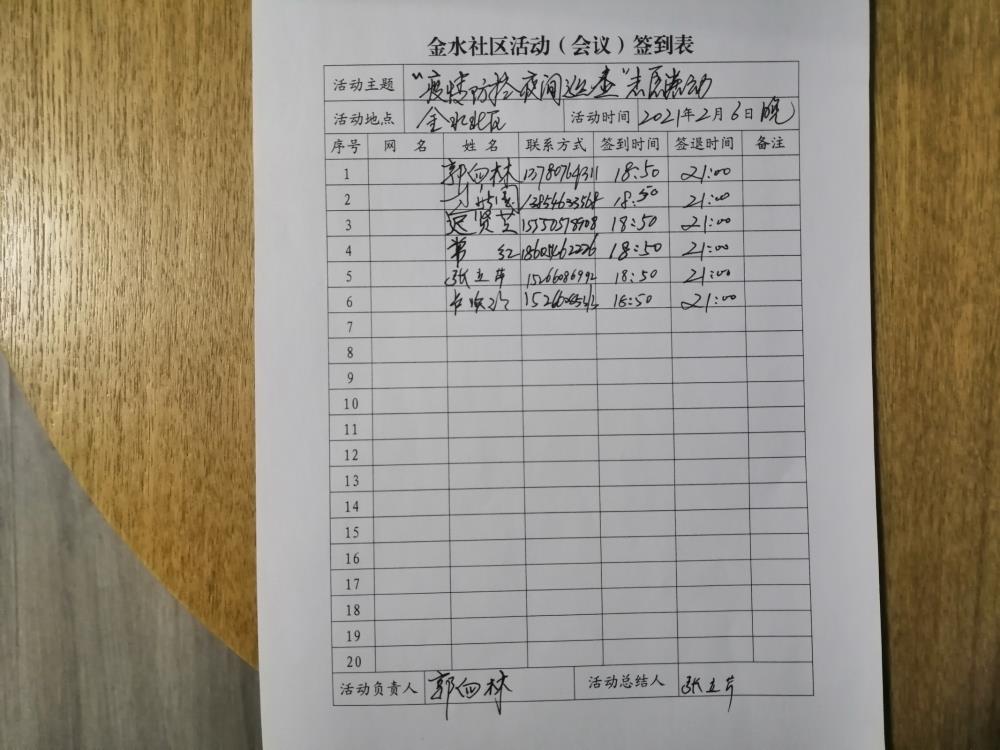 金水社区活动（会议）签到表
活动主题 "疫情防控夜间巡查"志愿活动
活动地点 金水社区 活动时间 2021年2月6日晚
序号 网 名 姓 名 联系方式 签到时间 签退时间 备注
1 郭向林 13780764311 18:50 21:00
2 18:50 21:00
3 贤芝 18:50 21:00
4 常 红 18605462226 18:50 21:00
5 张立芹 15266086992 18:50 21:00
6 18:50 21:00
7
8
9
10
11
12
13
14
15
16
17
18
19
20
活动负责人 郭向林 活动总结人 张立芹